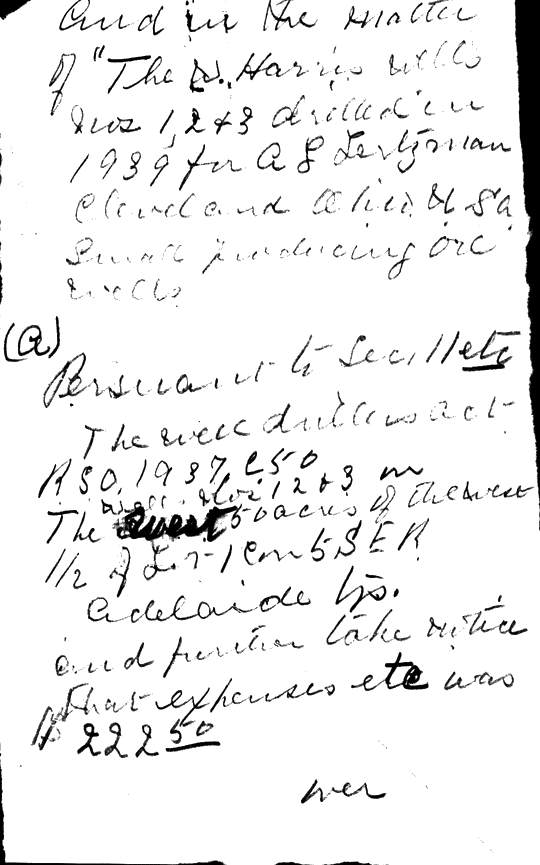 and in the matter
of "The W. Harris wells
Nos 1, 2 & 3 drilled in
1939 for A G Lertzman
Cleveland Ohio U Sa
Small producing oil
wells
(a)
Persuant to Sec. 11 etc
The well drillers act
R S O. 1937, C 50
wells Nos 1 2 & 3 on
The 50 acres of the west
1/2 of Lot 1 Con 5 S E R
Adelaide Tp.
and further take notice
that expenses etc was
222 50
over